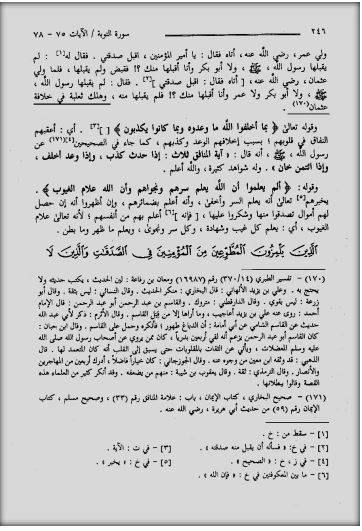 ٢٤٦ سورة التوبة / الآيات ٧٥ - ٧٨
ولي عمر، رضي الله عنه، أتاه فقال: يا أمير المؤمنين، اقبل صدقتي. فقال له[١]: لم
يقبلها رسول الله، ﷺ، ولا أبو بكر وأنا أقبلها منك ؟! فقبض ولم يقبلها، فلما ولي
عثمان، رضي الله عنه، [ أتاه فقال: اقبل صدقتي ][٢]. فقال: لم يقبلها رسول الله،
ﷺ، ولا أبو بكر ولا عمر وأنا أقبلها منك ؟! فلم يقبلها منه، وهلك ثعلبة في خلافة
عثمان(١٧٠).
وقوله تعالى: ﴿ بما أخلفوا الله ما وعدوه وبما كانوا يكذبون ﴾ [ ][٣]. أي: أعقبهم
النفاق في قلوبهم؛ بسبب إخلافهم الوعد وكذبهم، كما جاء في الصحيحين[٤](١٧١) عن
رسول الله، ﷺ، أنه قال: « آية المنافق ثلاث: إذا حدث كذب، وإذا وعد أخلف،
وإذا ائتمن خان ». وله شواهد كثيرة، والله أعلم.
وقوله: ﴿ ألم يعلموا أن الله يعلم سرهم ونجواهم وأن الله علام الغيوب ﴾.
يخبرهم[٥] تعالى أنه يعلم السر وأخفى، وأنه أعلم بضمائرهم، وإن أظهروا أنه إن حصل
لهم أموال تصدقوا منها وشكروا عليها، [ فإنه ][٦] أعلم بهم من أنفسهم؛ لأنه تعالى علام
الغيوب، أي: يعلم كل غيب وشهادة، وكل سر ونجوى، ويعلم ما ظهر وما بطن.
الَّذِينَ يَلْمِزُونَ الْمُطَّوِّعِينَ مِنَ الْمُؤْمِنِينَ فِي الصَّدَقَاتِ وَالَّذِينَ لَا
(١٧٠) - تفسير الطبري (٣٧٠/١٤) رقم (١٦٩٨٧) ومعان بن رفاعة: لين الحديث، يكتب حديثه ولا
يحتج به. وعلي بن يزيد الألهاني: قال البخاري: منكر الحديث. وقال النسائي: ليس بثقة. وقال أبو
زرعة: ليس بقوي. وقال الدارقطني: متروك. والقاسم بن عبد الرحمن أبو عبد الرحمن: قال الإمام
أحمد: روى عنه علي بن يزيد أعاجيب، وما أراها إلا من قِبَل القاسم. وقال الأثرم: ذكر لأبي عبد الله
حديث عن القاسم الشامي عن أبي أمامة: أن الدباغ طهور؛ فأنكره وحمل على القاسم. وقال ابن حبان:
كان القاسم أبو عبد الرحمن يزعم أنه لقي أربعين بدريا، كان ممن يروي عن أصحاب رسول الله صلى الله
عليه وسلم المعضلات، ويأتي عن الثقات بالمقلوبات حتى يسبق إلى القلب أنه كان المتعمد لها. قال
الذهبي: قد وثقه ابن معين من وجوه عنه. وقال الجوزجاني: كان خيارا فاضلاً، أدرك أربعين من المهاجرين
والأنصار. وقال الترمذي: ثقة. وقال يعقوب بن شيبة: منهم من يضعفه. وقد أنكر كثير من العلماء هذه
القصة وقالوا ببطلانها.
(١٧١) - صحيح البخاري، كتاب الإيمان، باب: علامة المنافق رقم (٣٣)، وصحيح مسلم، كتاب
الإيمان رقم (٥٩) من حديث أبي هريرة، رضي الله عنه.
[١] - سقط من: خ.
[٢] - في خ: « فسأله أن يقبل منه صدقته ». [٣] - في ت: الآية.
[٤] - في ز، خ: « الصحيح ». [٥] - في خ: « يخبر ».
[٦] - ما بين المعكوفتين في خ: « فإن الله ».